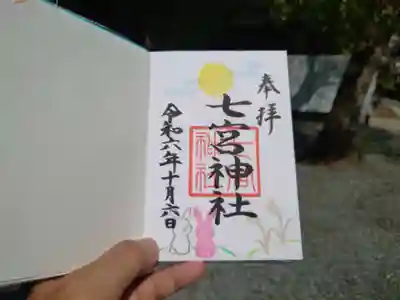 奉拝
七宮神社
令和六年十月六日